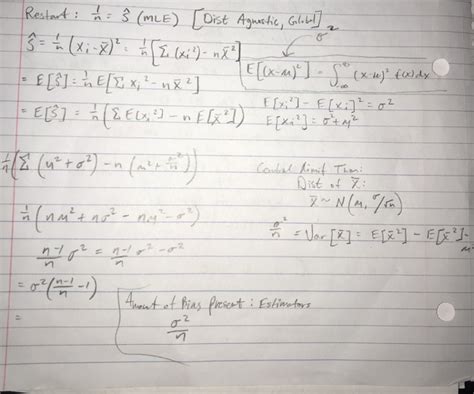 Restart : 1/n = ŝ (MLE) [Dist Agnostic, Global]
ŝ = 1/n (xᵢ - x̄)² = 1/n [Σ (xᵢ²) - n x̄²]
σ²
E[(x-μ)²] = ∫_{-∞}^{∞} (x-μ)² f(x)dx
= E[ŝ] = 1/n E[Σ xᵢ² - n x̄²]
= E[ŝ] = 1/n (Σ E(xᵢ²] - n E[x̄²])
E[xᵢ²] - E[xᵢ]² = σ²
E[xᵢ²] = σ² + μ²
1/n (Σ (μ² + σ²) - n (μ² + σ²/n))
Central Limit Thm:
Dist of x̄:
x̄ ~ N(μ, σ/√n)
1/n (nμ² + nσ² - nμ² - σ²)
σ²/n = Var[x̄] = E[x̄²] - E[x̄²]
n-1/n σ² = n-1/n σ² - σ²
= σ² (n-1/n - 1)
=
Amount of Bias Present : Estimators
σ²/n